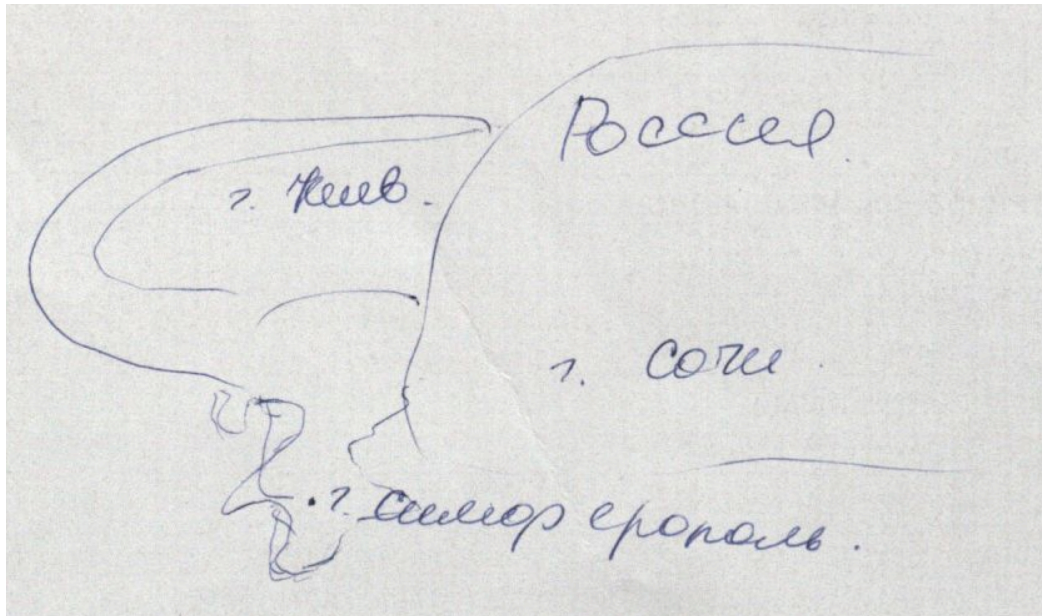 Россия.
г. Киев.
г. сочи
г. симфорополь.